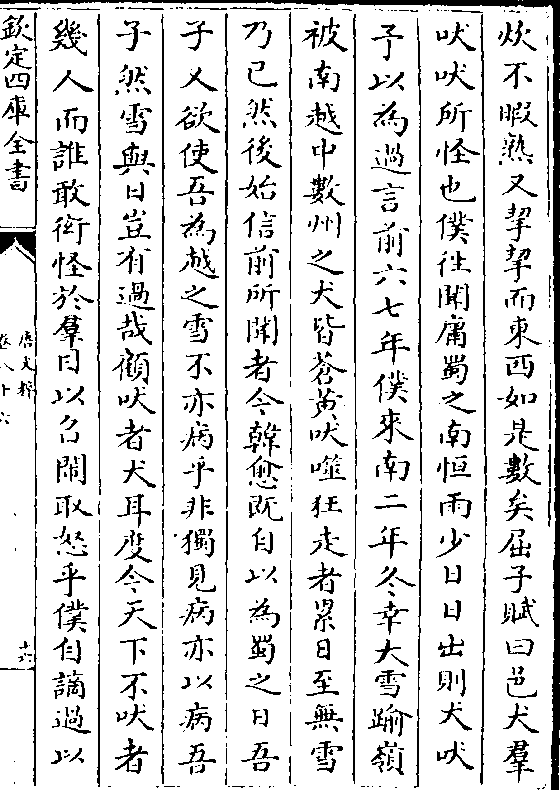 炊不暇熟又挈挈而東西如是數矣屈子賦曰邑犬羣
吠吠所怪也僕往聞庸蜀之南恒雨少日日出則犬吠
予以為過言前六七年僕來南二年冬幸大雪踰嶺
被南越中數州之犬皆蒼黄吠噬狂走者累日至無雪
乃已然後始信前所聞者今韓愈既自以為蜀之日吾
子又欲使吾為越之雪不亦病乎非獨見病亦以病吾
子然雪與日豈有過哉顧吠者犬耳度今天下不吠者
幾人而誰敢衒怪於羣目以召閙取怒乎僕自謫過以
欽定四庫全書
唐文粹
卷八十六
十六